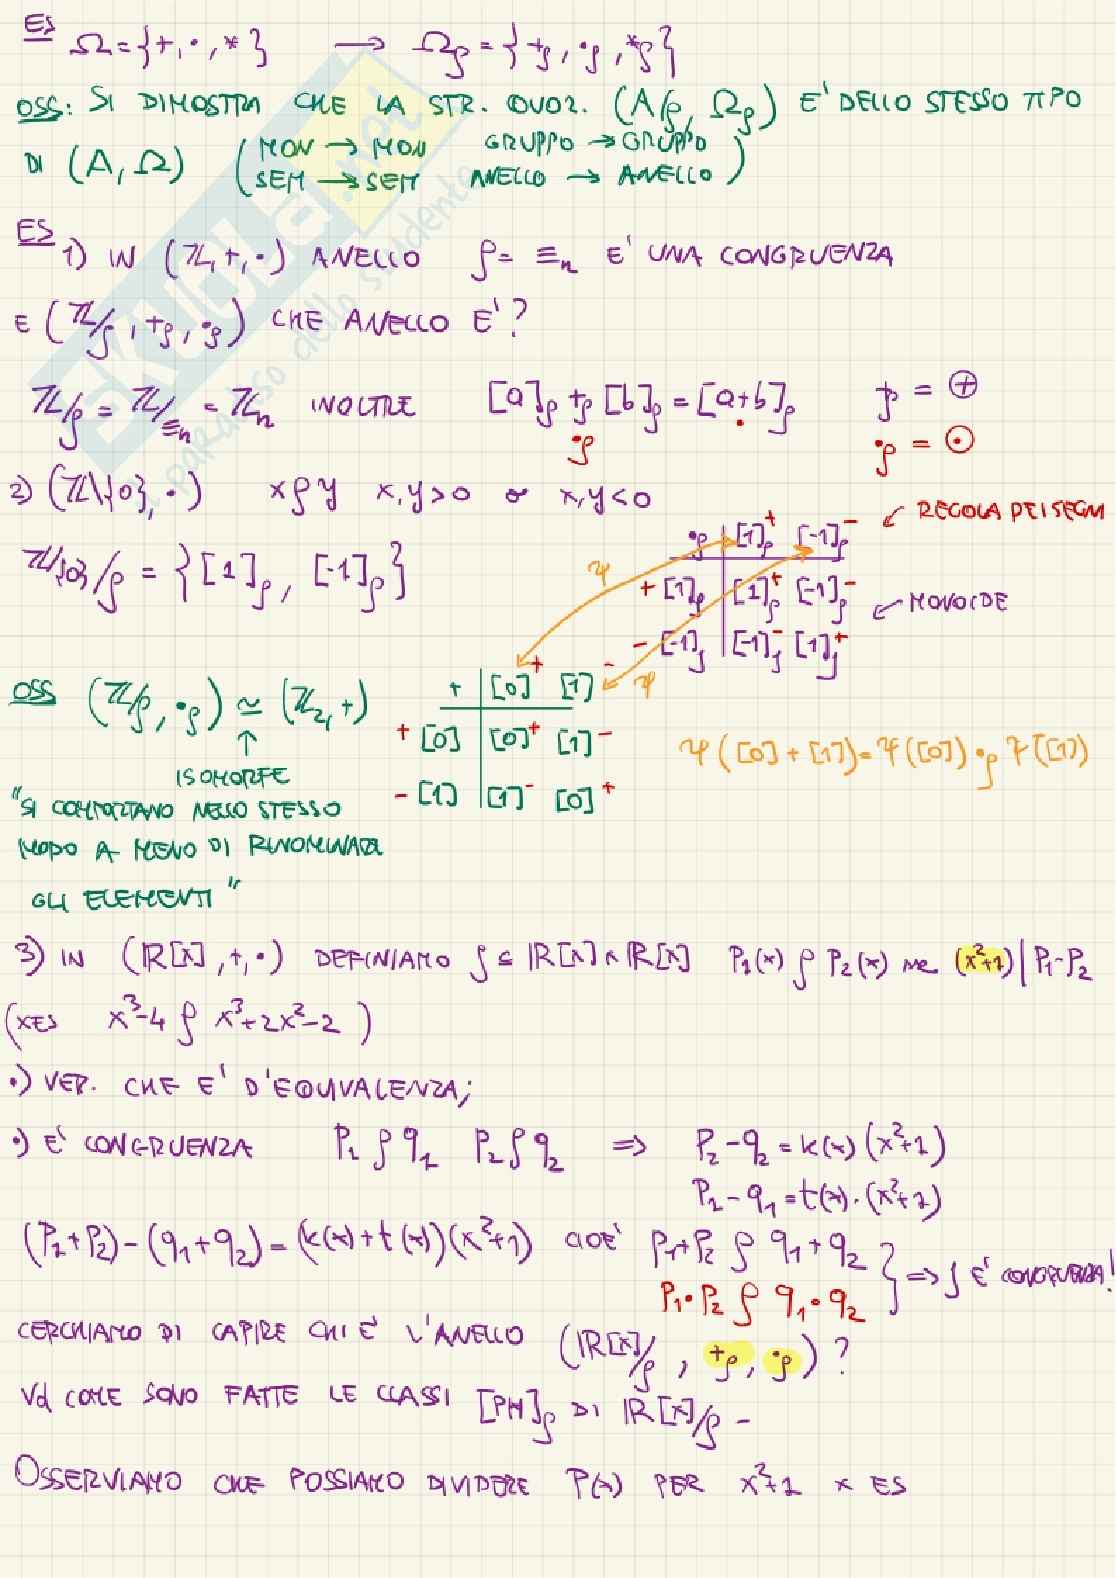 ES Ω={+,·,*} → Ωρ={+ρ,·ρ,*ρ}
OSS: SI DIMOSTRA CHE LA STR. QUOZ. (A/ρ, Ωρ) E' DELLO STESSO TIPO
DI (A,Ω) (MON → MON GRUPPO → GRUPPO
SEM → SEM ANELLO → ANELLO)
ES 1) IN (ℤ,+,·) ANELLO ρ= ≡n E' UNA CONGRUENZA
E (ℤ/ρ,+ρ,·ρ) CHE ANELLO E'?
ℤ/ρ = ℤ/≡n = ℤn INOLTRE [a]ρ +ρ [b]ρ = [a+b]ρ +ρ = ⊕
·ρ · ·ρ = ⊙
2) (ℤ\{0},·) xρy x,y>0 o x,y<0
REGOLA DEI SEGNI
ℤ\{0}/ρ = {[1]ρ, [-1]ρ}
·ρ | [1]ρ + [-1]ρ -
+ [1]ρ | [1]ρ + [-1]ρ -
- [-1]ρ | [-1]ρ - [1]ρ +
MONOIDE
ψ
ψ
OSS (ℤ/ρ,·ρ) ≃ (ℤ2,+)
↑
ISOMORFE
"SI COMPORTANO NELLO STESSO
MODO A MENO DI RINOMINARE
GLI ELEMENTI"
+ | [0] + [1] -
+ [0] | [0] + [1] -
- [1] | [1] - [0] +
ψ([0]+[1])=ψ([0])·ρ ψ([1])
3) IN (ℝ[x],+,·) DEFINIAMO ρ ⊆ ℝ[x]×ℝ[x] P1(x) ρ P2(x) se (x²+1)|P1-P2
(XES x³-4 ρ x³+2x²-2)
·) VER. CHE E' D'EQUIVALENZA;
·) E' CONGRUENZA P1 ρ q1 P2 ρ q2 ⇒ P2-q2=k(x)(x²+1)
P1-q1=t(x)·(x²+1)
(P1+P2)-(q1+q2)=(k(x)+t(x))(x²+1) CIOE' P1+P2 ρ q1+q2
P1·P2 ρ q1·q2 } ⇒ ρ E' CONGRUENZA!
CERCHIAMO DI CAPIRE CHI E' L'ANELLO (ℝ[x]/ρ, +ρ, ·ρ)?
COME SONO FATTE LE CLASSI [P(x)]ρ DI ℝ[x]/ρ -
OSSERVIAMO CHE POSSIAMO DIVIDERE P(x) PER x²+1 x ES